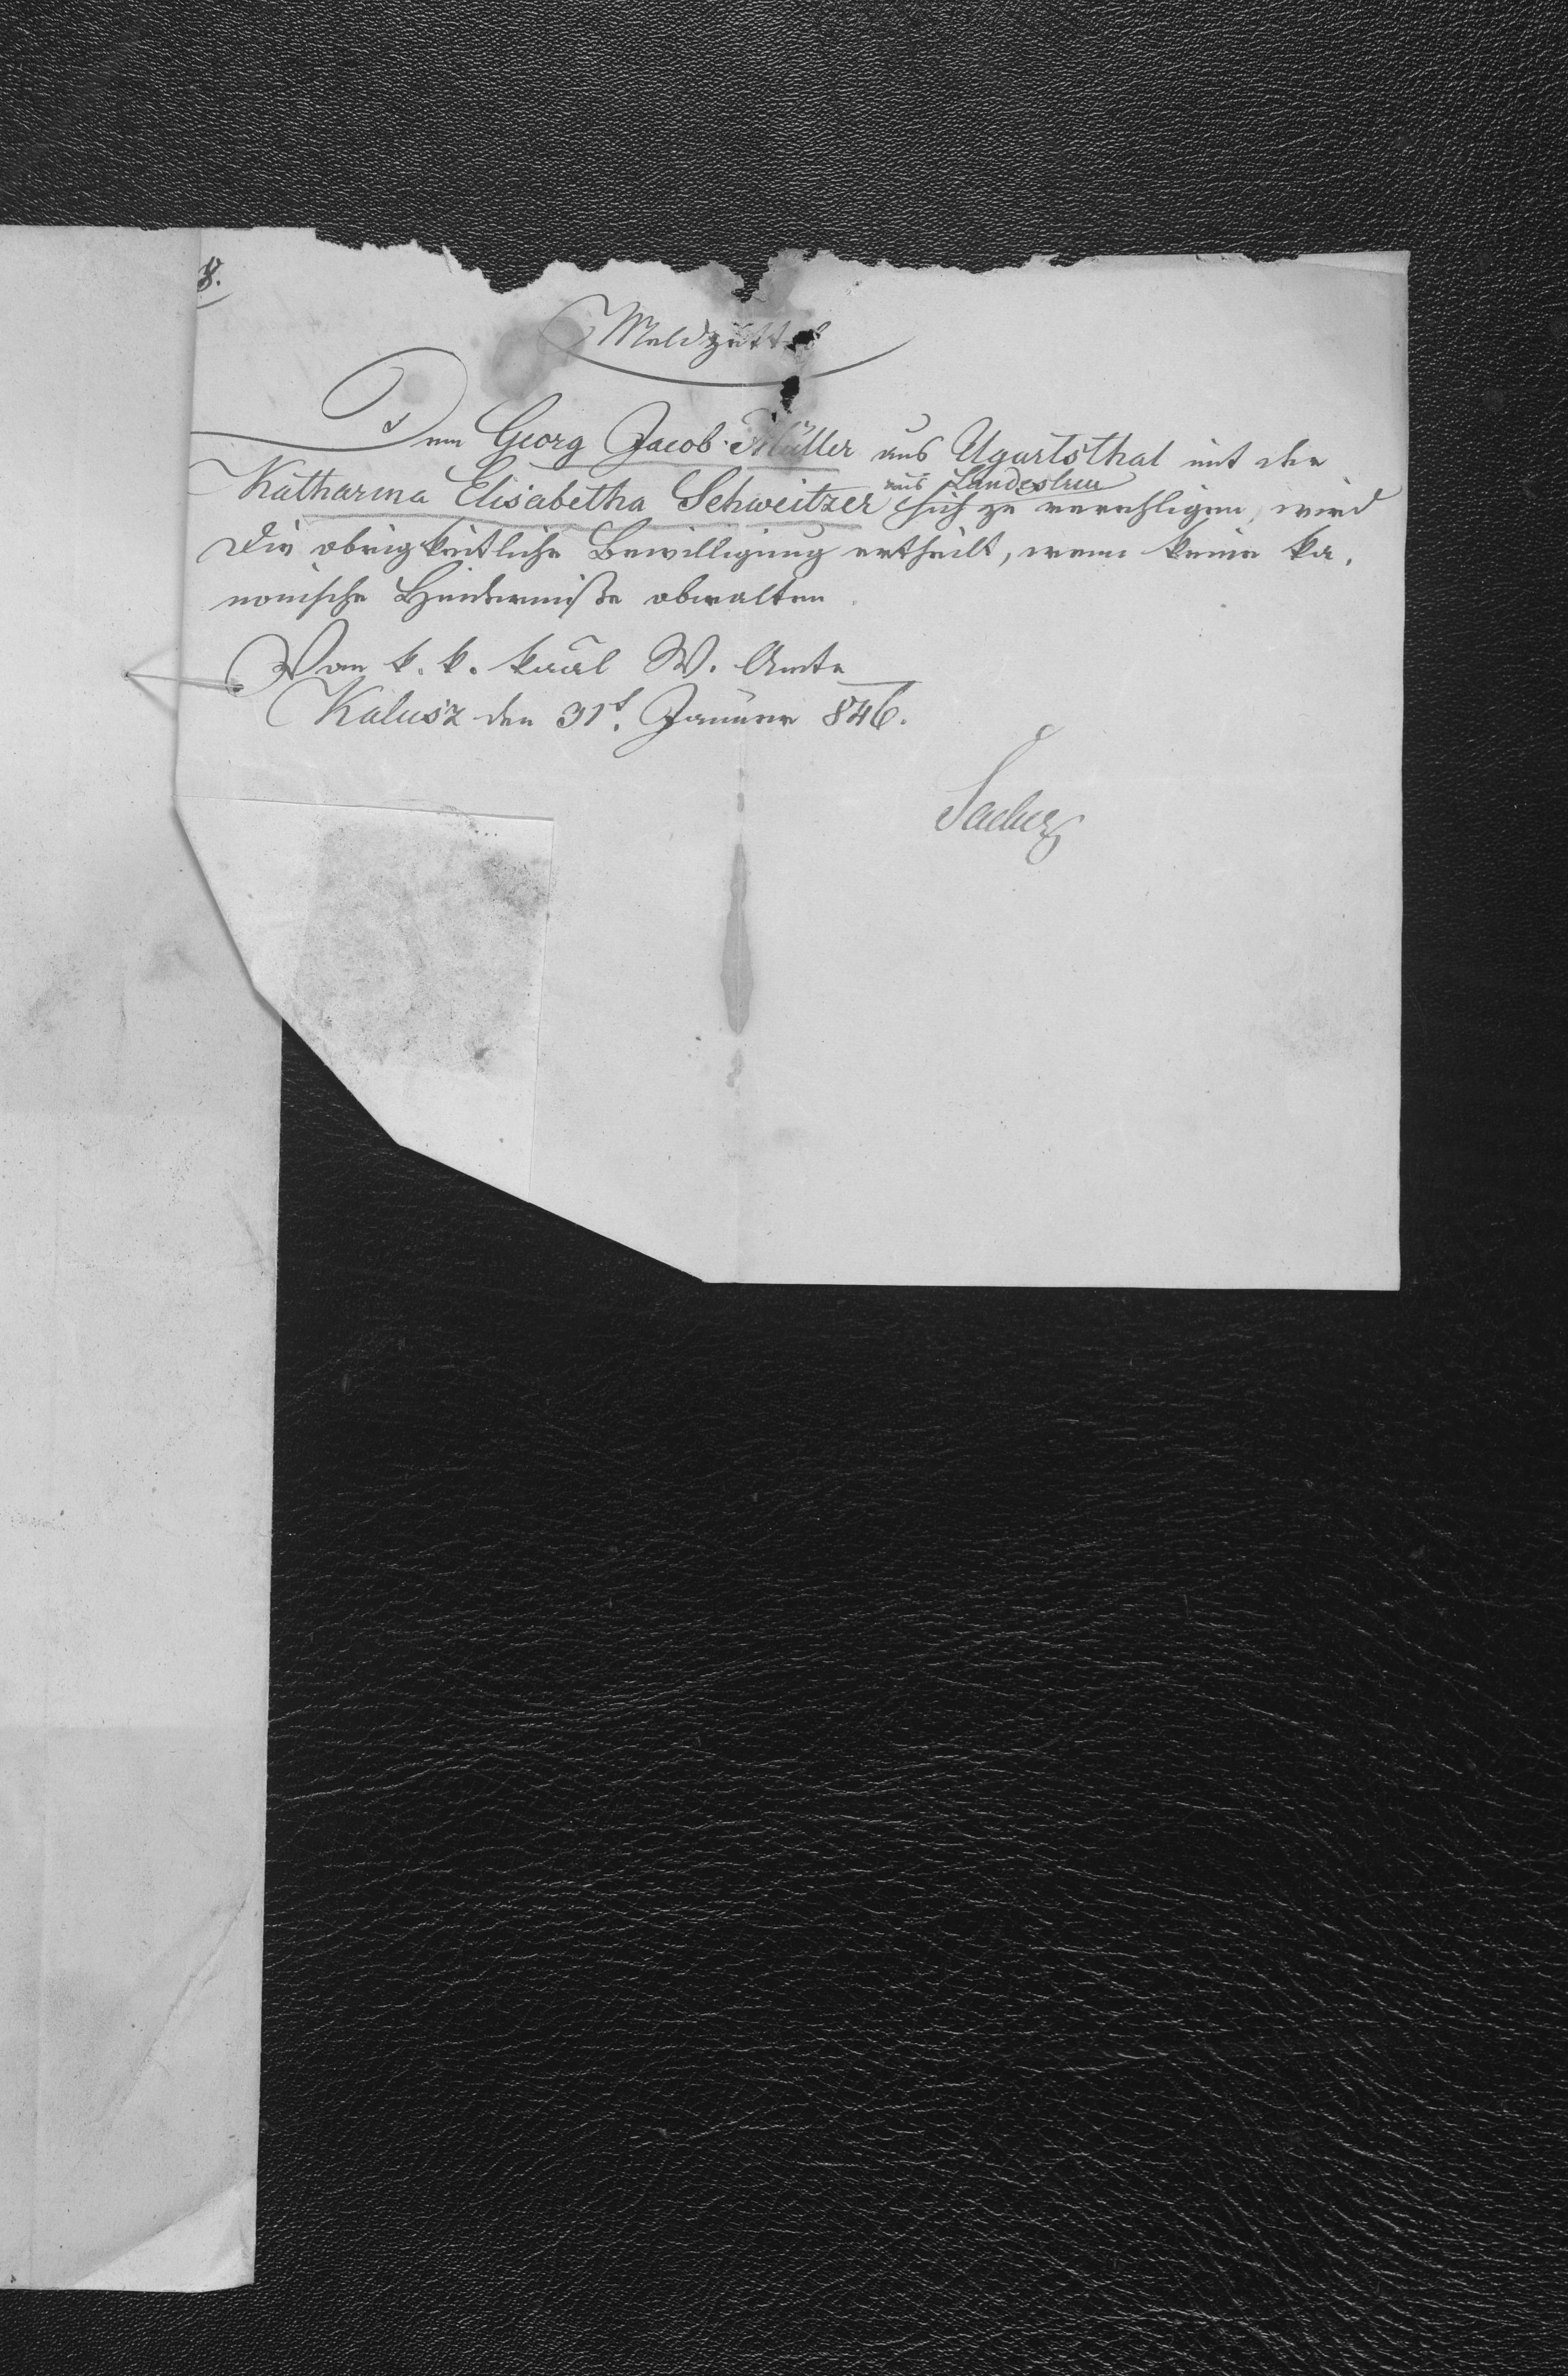 8.
Meldzettel
Dem Georg Jacob Müller aus Ugartsthal mit der
aus Landestreu
Katharina Elisabetha Schweitzer sich zu verehligen, wird
die obrigkeitliche Bewilligung ertheilt, wenn keine ka-
nonische Hinderniße obwalten.
Vom k. k. kaal W. Amte
Kalusz den 31t. Januer 846.